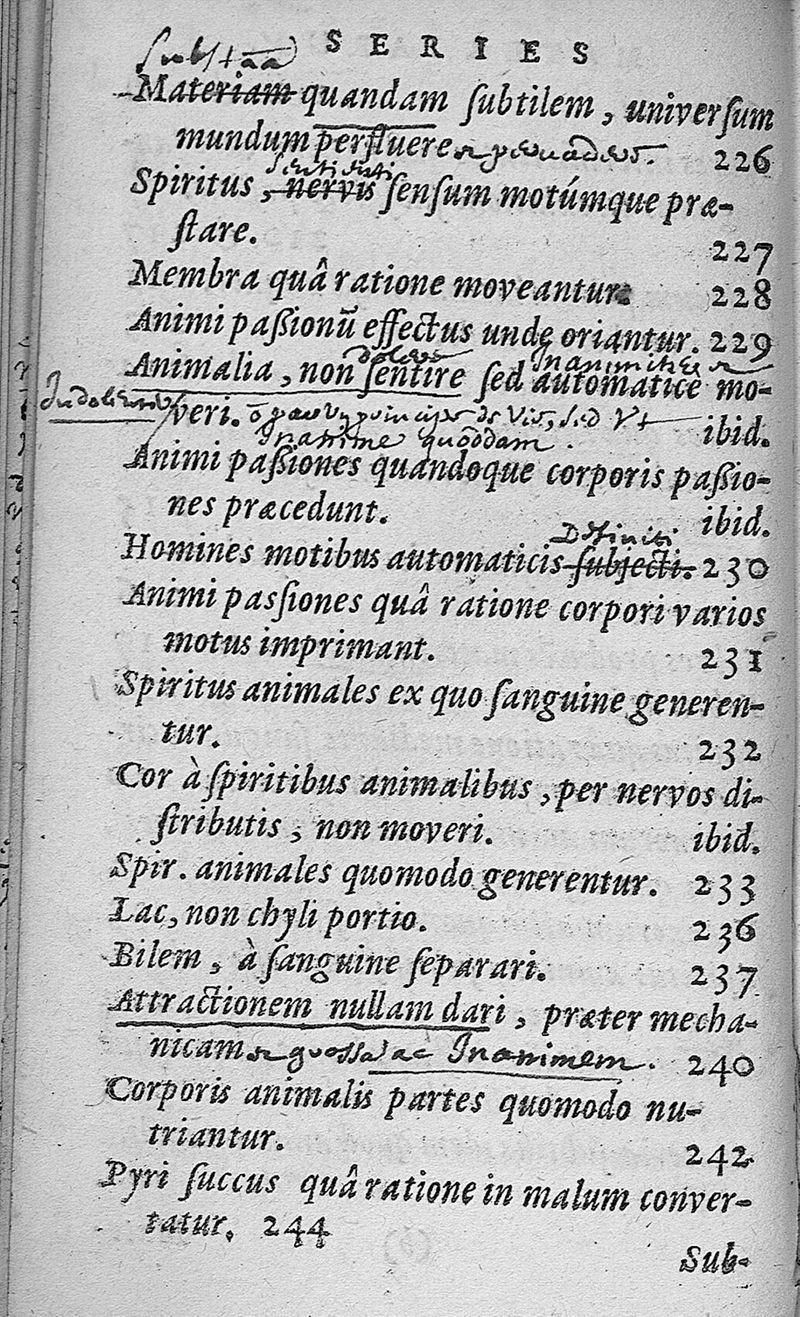 SERIES
Materiam quandam ſubtilem, univerſum
mundum perfluere 226
Spiritus, nervis ſenſum motúmque præ-
ſtare. 227
Membra quâ ratione moveantur 228
Animi paſsionũ effectus unde oriantur. 229
dolere
Animalia, non ſentire ſed automatice mo-
veri. ibid.
Inanime quoddam.
Animi paſsiones quandoque corporis paſsio-
nes præcedunt. ibid.
Homines motibus automaticis ſubjecti. 230
Animi paſsiones quâ ratione corpori varios
motus imprimant. 231
Spiritus animales ex quo ſanguine generen-
tur. 232
Cor à ſpiritibus animalibus, per nervos di-
ſtributis, non moveri. ibid.
Spir. animales quomodo generentur. 233
Lac, non chyli portio. 236
Bilem, à ſanguine ſeparari. 237
Attractionem nullam dari, præter mecha-
nicam ac Inanimem. 240
Corporis animalis partes quomodo nu-
triantur. 242
Pyri ſuccus quâ ratione in malum conver-
tatur. 244
Sub-